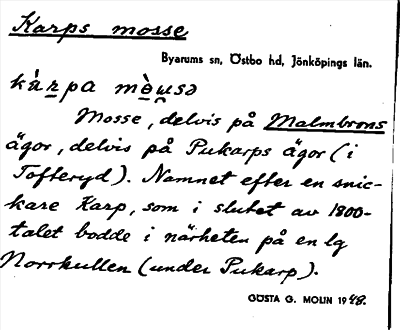 Karps mosse
Byarums sn, Östbo hd, Jönköpings län.
Mosse, delvis på Malmbrons
ägor, delvis på Pukarps ägor (i
Tofteryd). Namnet efter en snic-
kare Karp, som i slutet av 1800-
talet bodde i närheten på en lg
Norrkullen (under Pukarp).
GÖSTA G. MOLIN 1948.